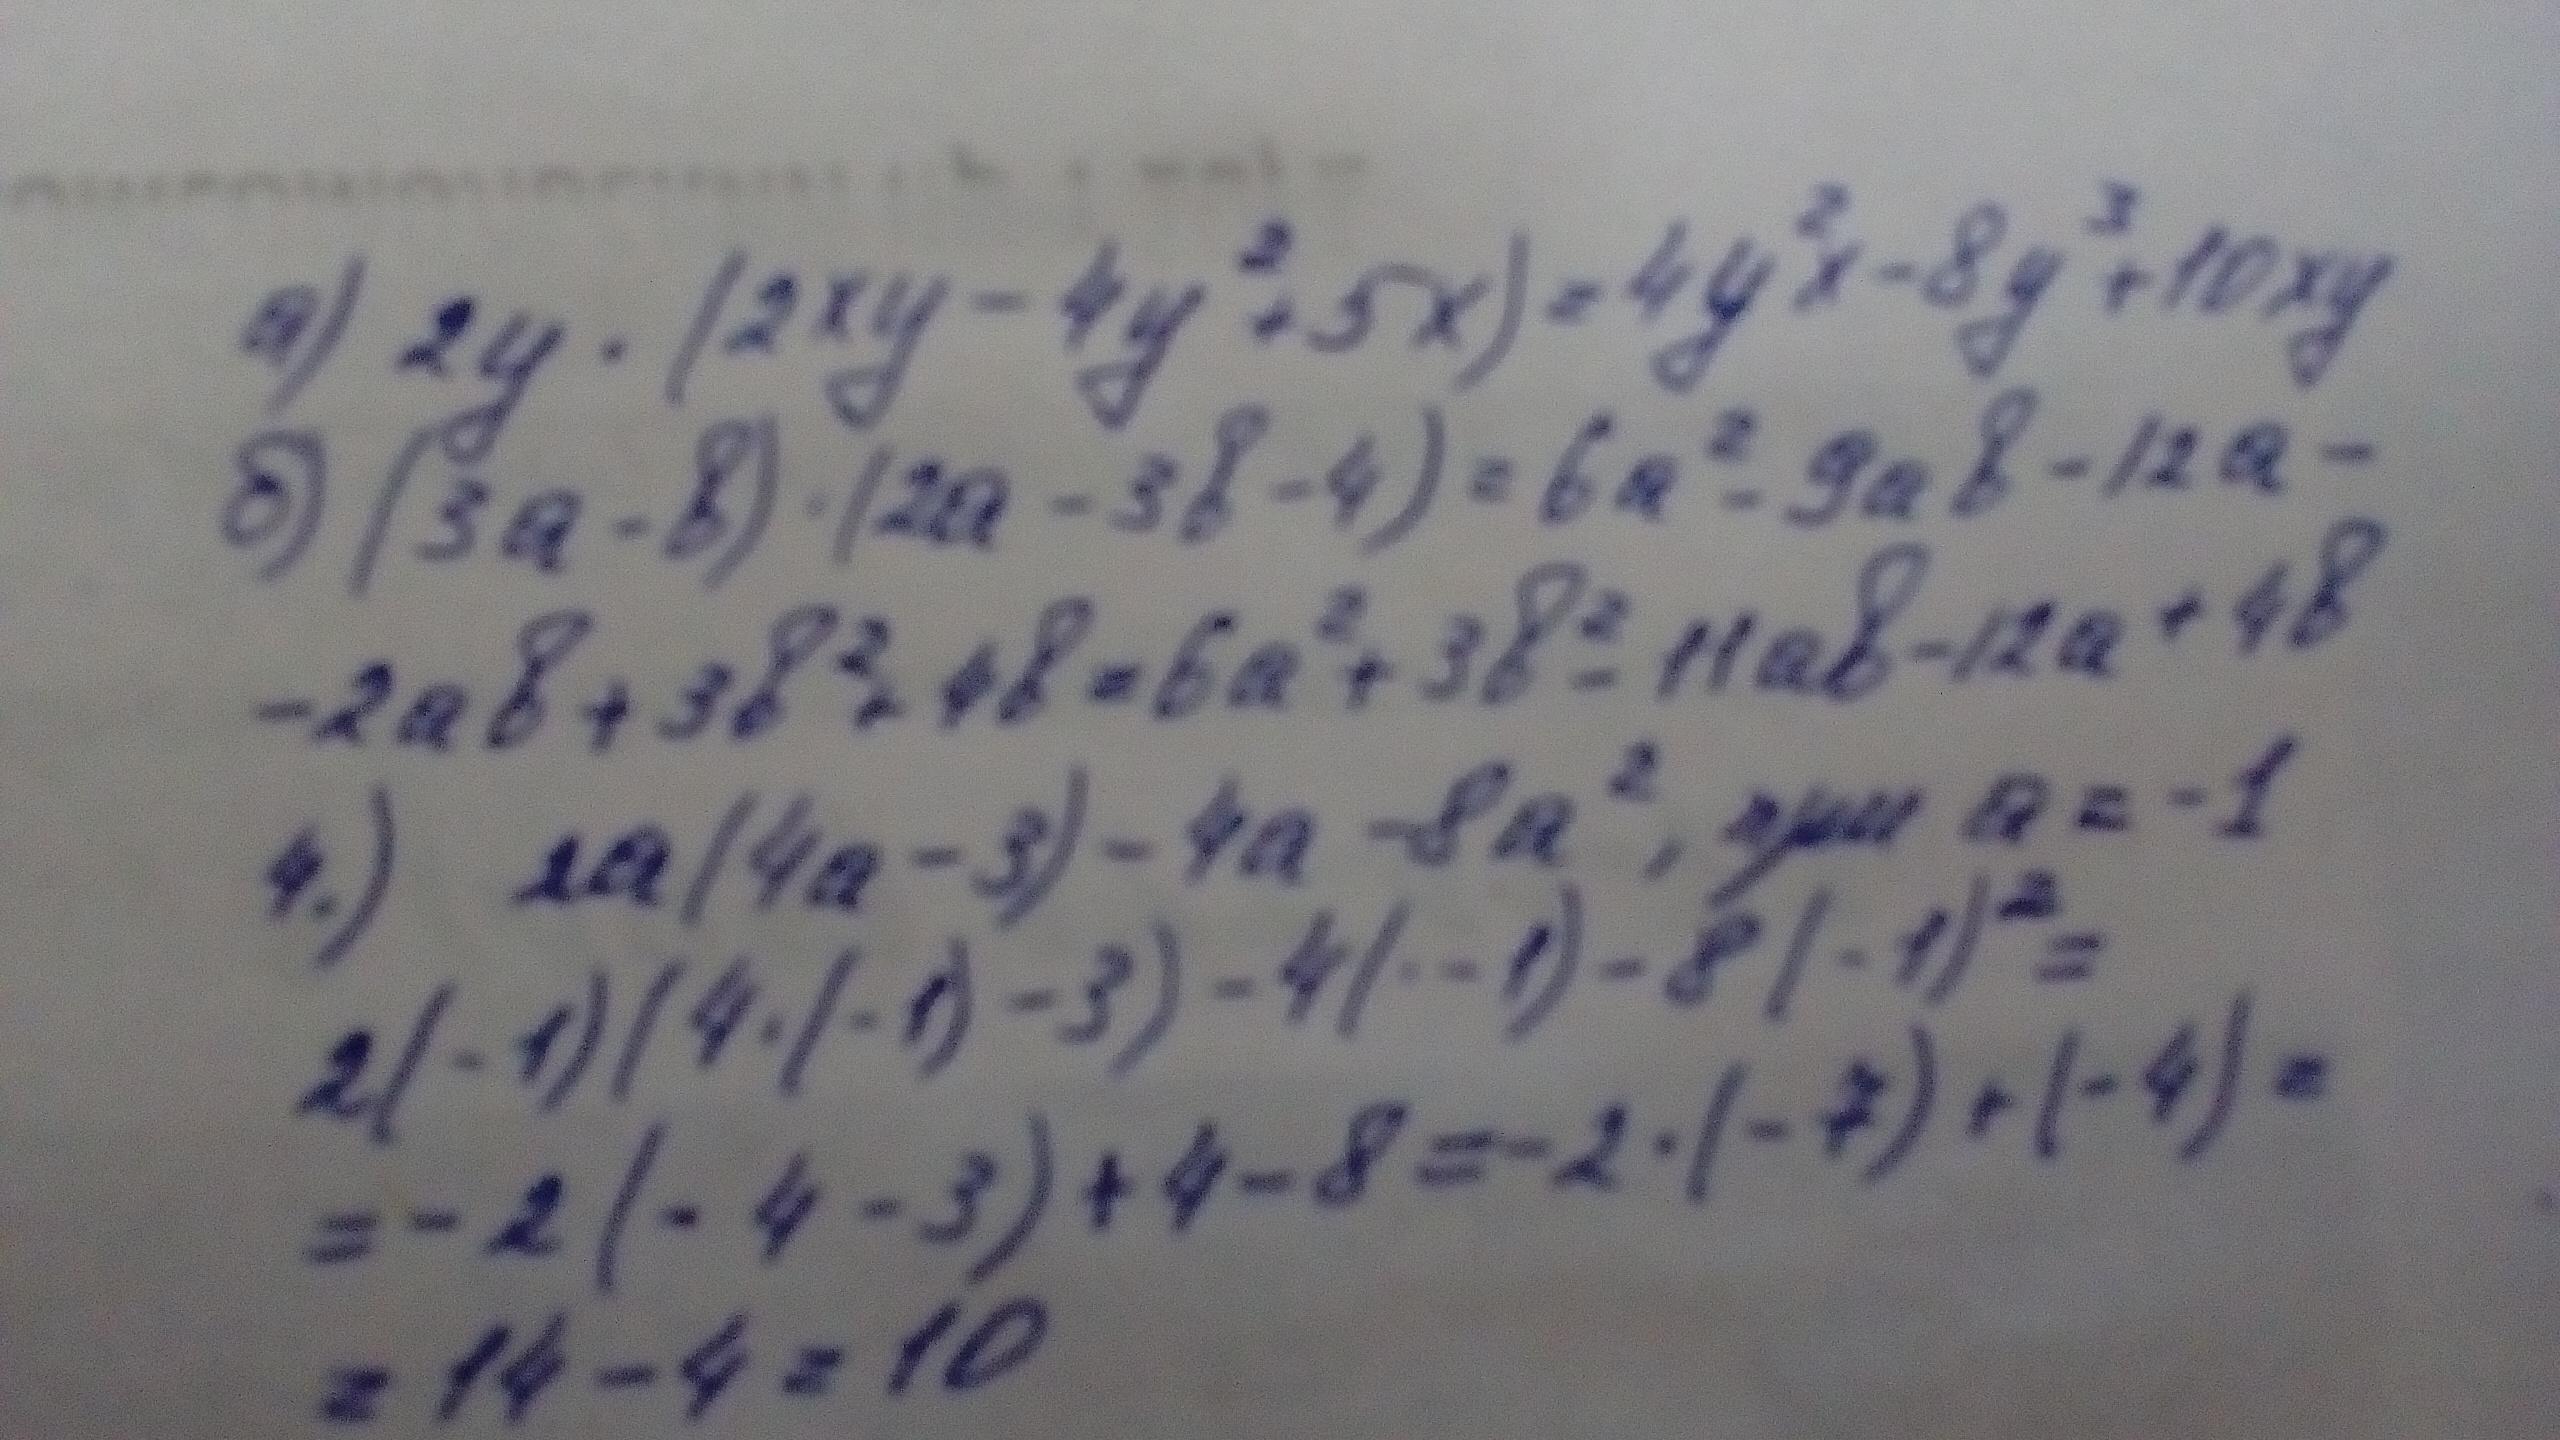 а) 2y · (2xy - 4y² + 5x) = 4y²x - 8y³ + 10xy
б) (3a - b) · (2a - 3b - 4) = 6a² - 9ab - 12a -
- 2ab + 3b² + 4b = 6a² + 3b² - 11ab - 12a + 4b
4.) 2a(4a - 3) - 4a - 8a², при a = -1
2(-1)(4·(-1) - 3) - 4(-1) - 8(-1)² =
= -2(-4 - 3) + 4 - 8 = -2·(-7) + (-4) =
= 14 - 4 = 10